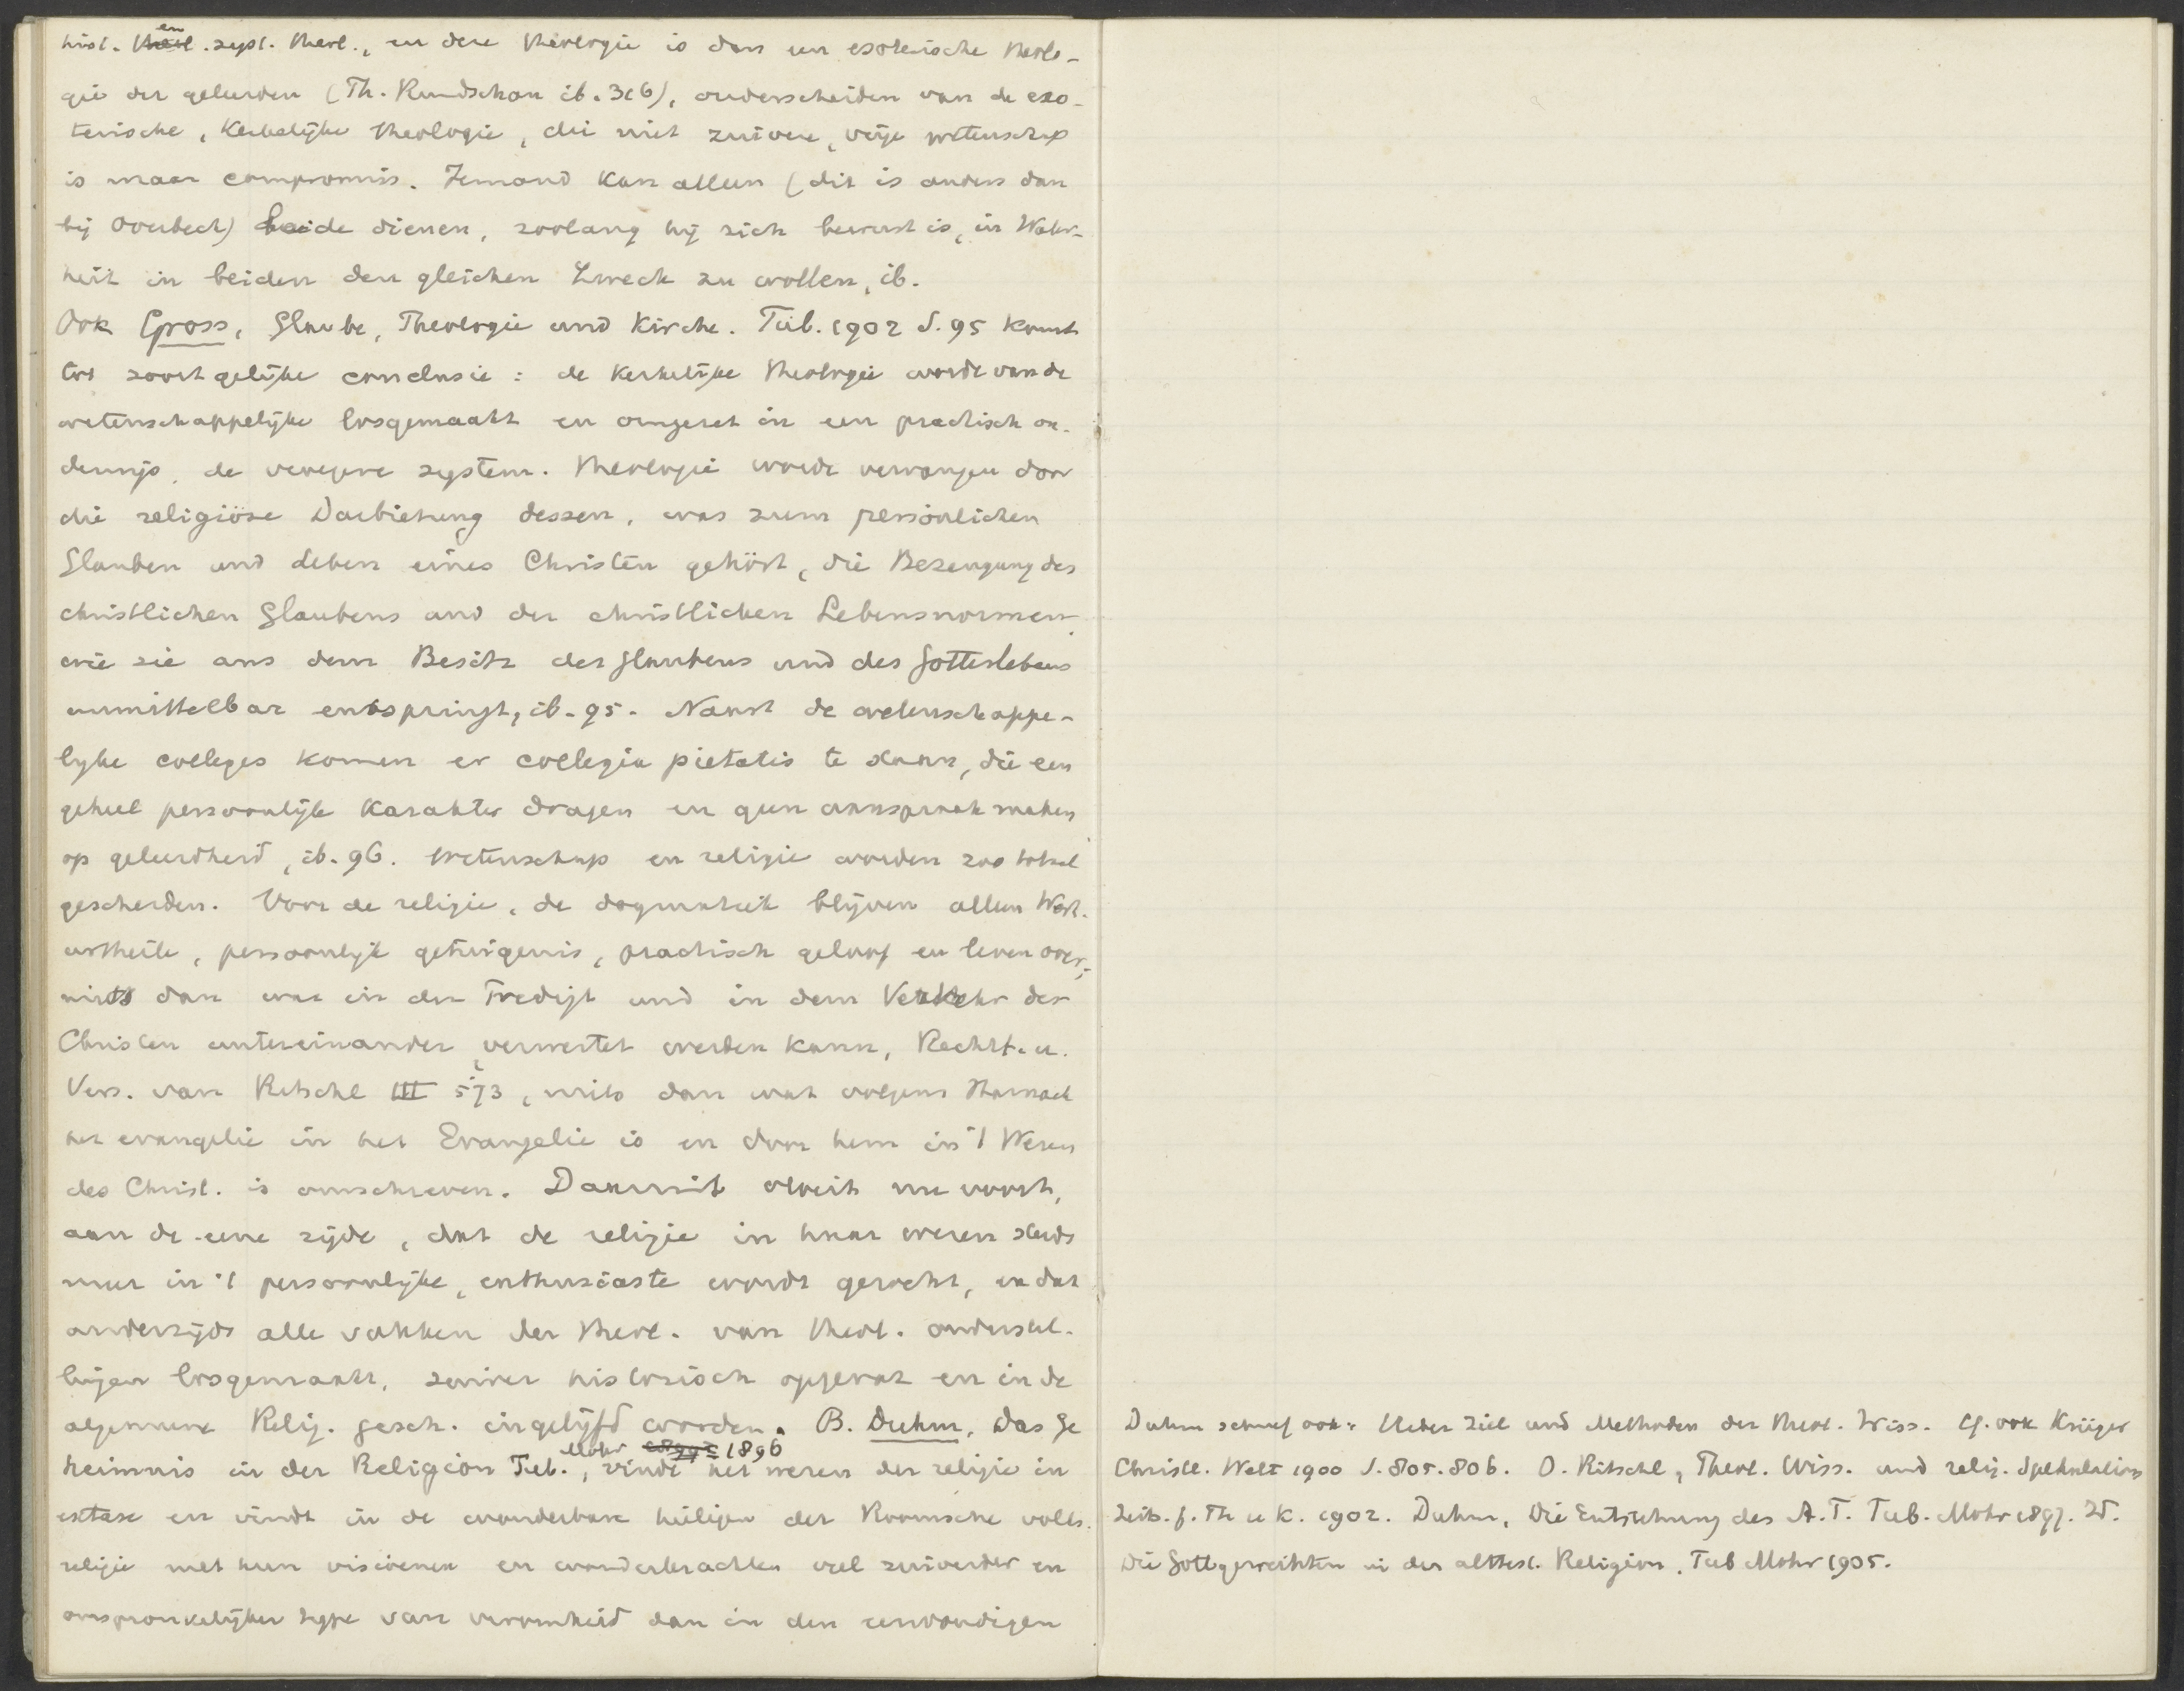 hist. en syst. theol., en deze theologie is dan een esoterische theolo-
gie der geleerden (Th. Rundschau ib. 316), onderscheiden van de exo-
terische, kerkelijke theologie, die niet zuivere, vrije wetenschap
is maar compromis. Iemand kan alleen (dit is anders dan
bij Overbeck) beide dienen, zoolang hij zich bewust is, in Wahr-
heit in beiden den gleichen Zweck zu wollen, ib.
Ook Gross, Glaube, Theologie und Kirche. Tüb. 1902 S. 95 komt
tot soortgelijke conclusie: de kerkelijke theologie worde van de
wetenschappelijke losgemaakt en omgezet in een practisch on-
derwijs, de vroegere system. theologie worde vervangen door
die religiöse Darbietung dessen, was zum persönlichen
Glauben und Leben eines Christen gehört, die Bezeugung des
christlichen Glaubens und der christlichen Lebensnormen,
wie sie aus dem Besitz des Glaubens und des Gotteslebens
unmittelbar entspringt, ib. 95. Naast de wetenschappe-
lijke colleges komen er collegia pietatis te staan, die een
geheel persoonlijk karakter dragen en geen aanspraak maken
op geleerdheid, ib. 96. Wetenschap en religie worden zoo totaal
gescheiden. Voor de religie, de dogmatiek blijven alleen Wert-
urtheile, persoonlijk getuigenis, practisch geloof en leven over,
niets dan was in der Predigt und in dem Verkehr der
Christen untereinander verwertet werden kann, Rechtf. u.
Vers. van Ritschl III 573, niets dan wat volgens Harnack
het evangelie in het Evangelie is en door hem in 't Wesen
des Christ. is omschreven. Daaruit vloeit nu voort,
aan de eene zijde, dat de religie in haar wezen steeds
meer in 't persoonlijke, enthusiaste wordt gezocht, en dat
anderzijds alle vakken der theol. van theol. onderstel-
lingen losgemaakt, zuiver historisch opgevat en in de
algemeene Relig. gesch. ingelijfd worden. B. Duhm, Das Ge
heimnis in der Religion Tüb. Mohr 1896, vindt het wezen der religie in
extase en vindt in de wonderbare heiligen der Roomsche volks-
religie met hun visioenen en wonderkrachten veel zuiverder en
oorspronkelijker type van vroomheid dan in den eenvoudigen
Duhm schreef ook: Ueber Ziel und Methoden der theol. Wiss. Cf. ook Krüger
Christl. Welt 1900 S. 805. 806. O. Ritschl, Theol. Wiss. und relig. Spekulation
Zeits. f. Th u K. 1902. Duhm, Die Entstehung des A. T. Tüb. Mohr 1897. Id.
Die Gottgeweihten in der alttest. Religion. Tüb Mohr 1905.